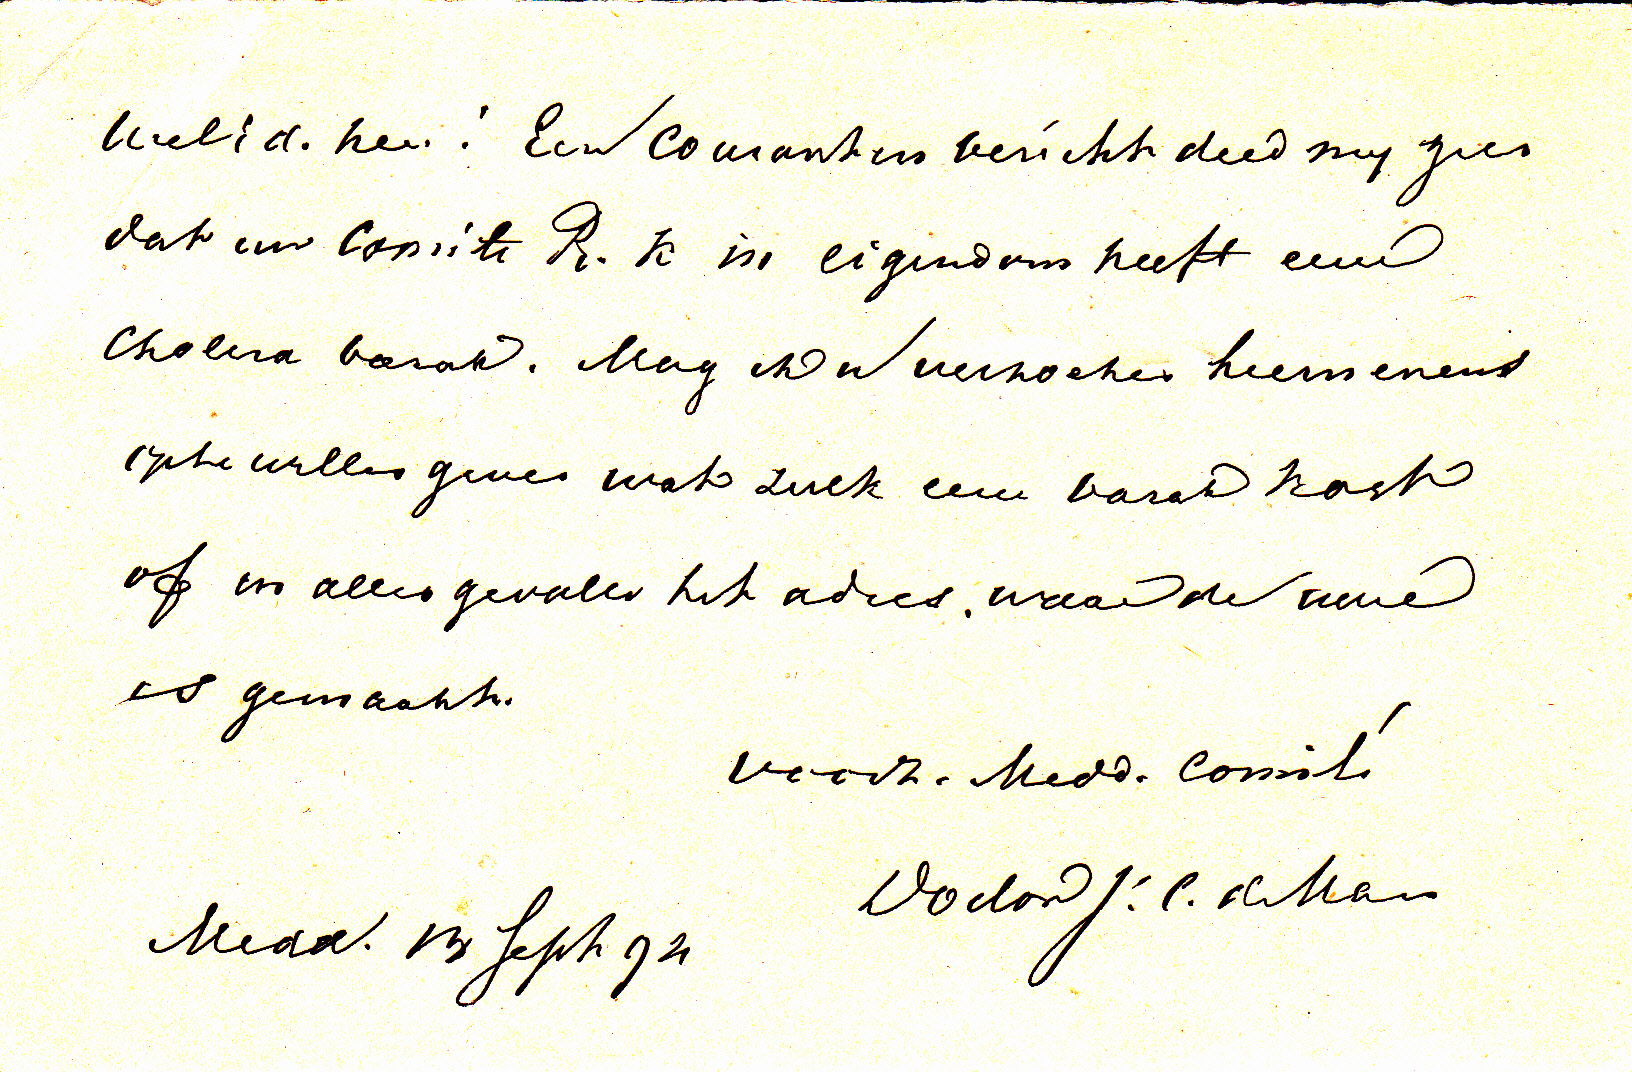 WelEd. heer! Een Courantenbericht deed my zien
dat uw Comité R. K in eigendom heeft eene
Cholera barak. Mag ik U verzoeken hieromtrent
opte willen geven wat zulk eene barak kost
of in allen gevallen het adres, waar de uwe
is gemaakt.
Voorz. Midd. Comité
Doctor J. C. de Man
Midd. 13 Sept 92